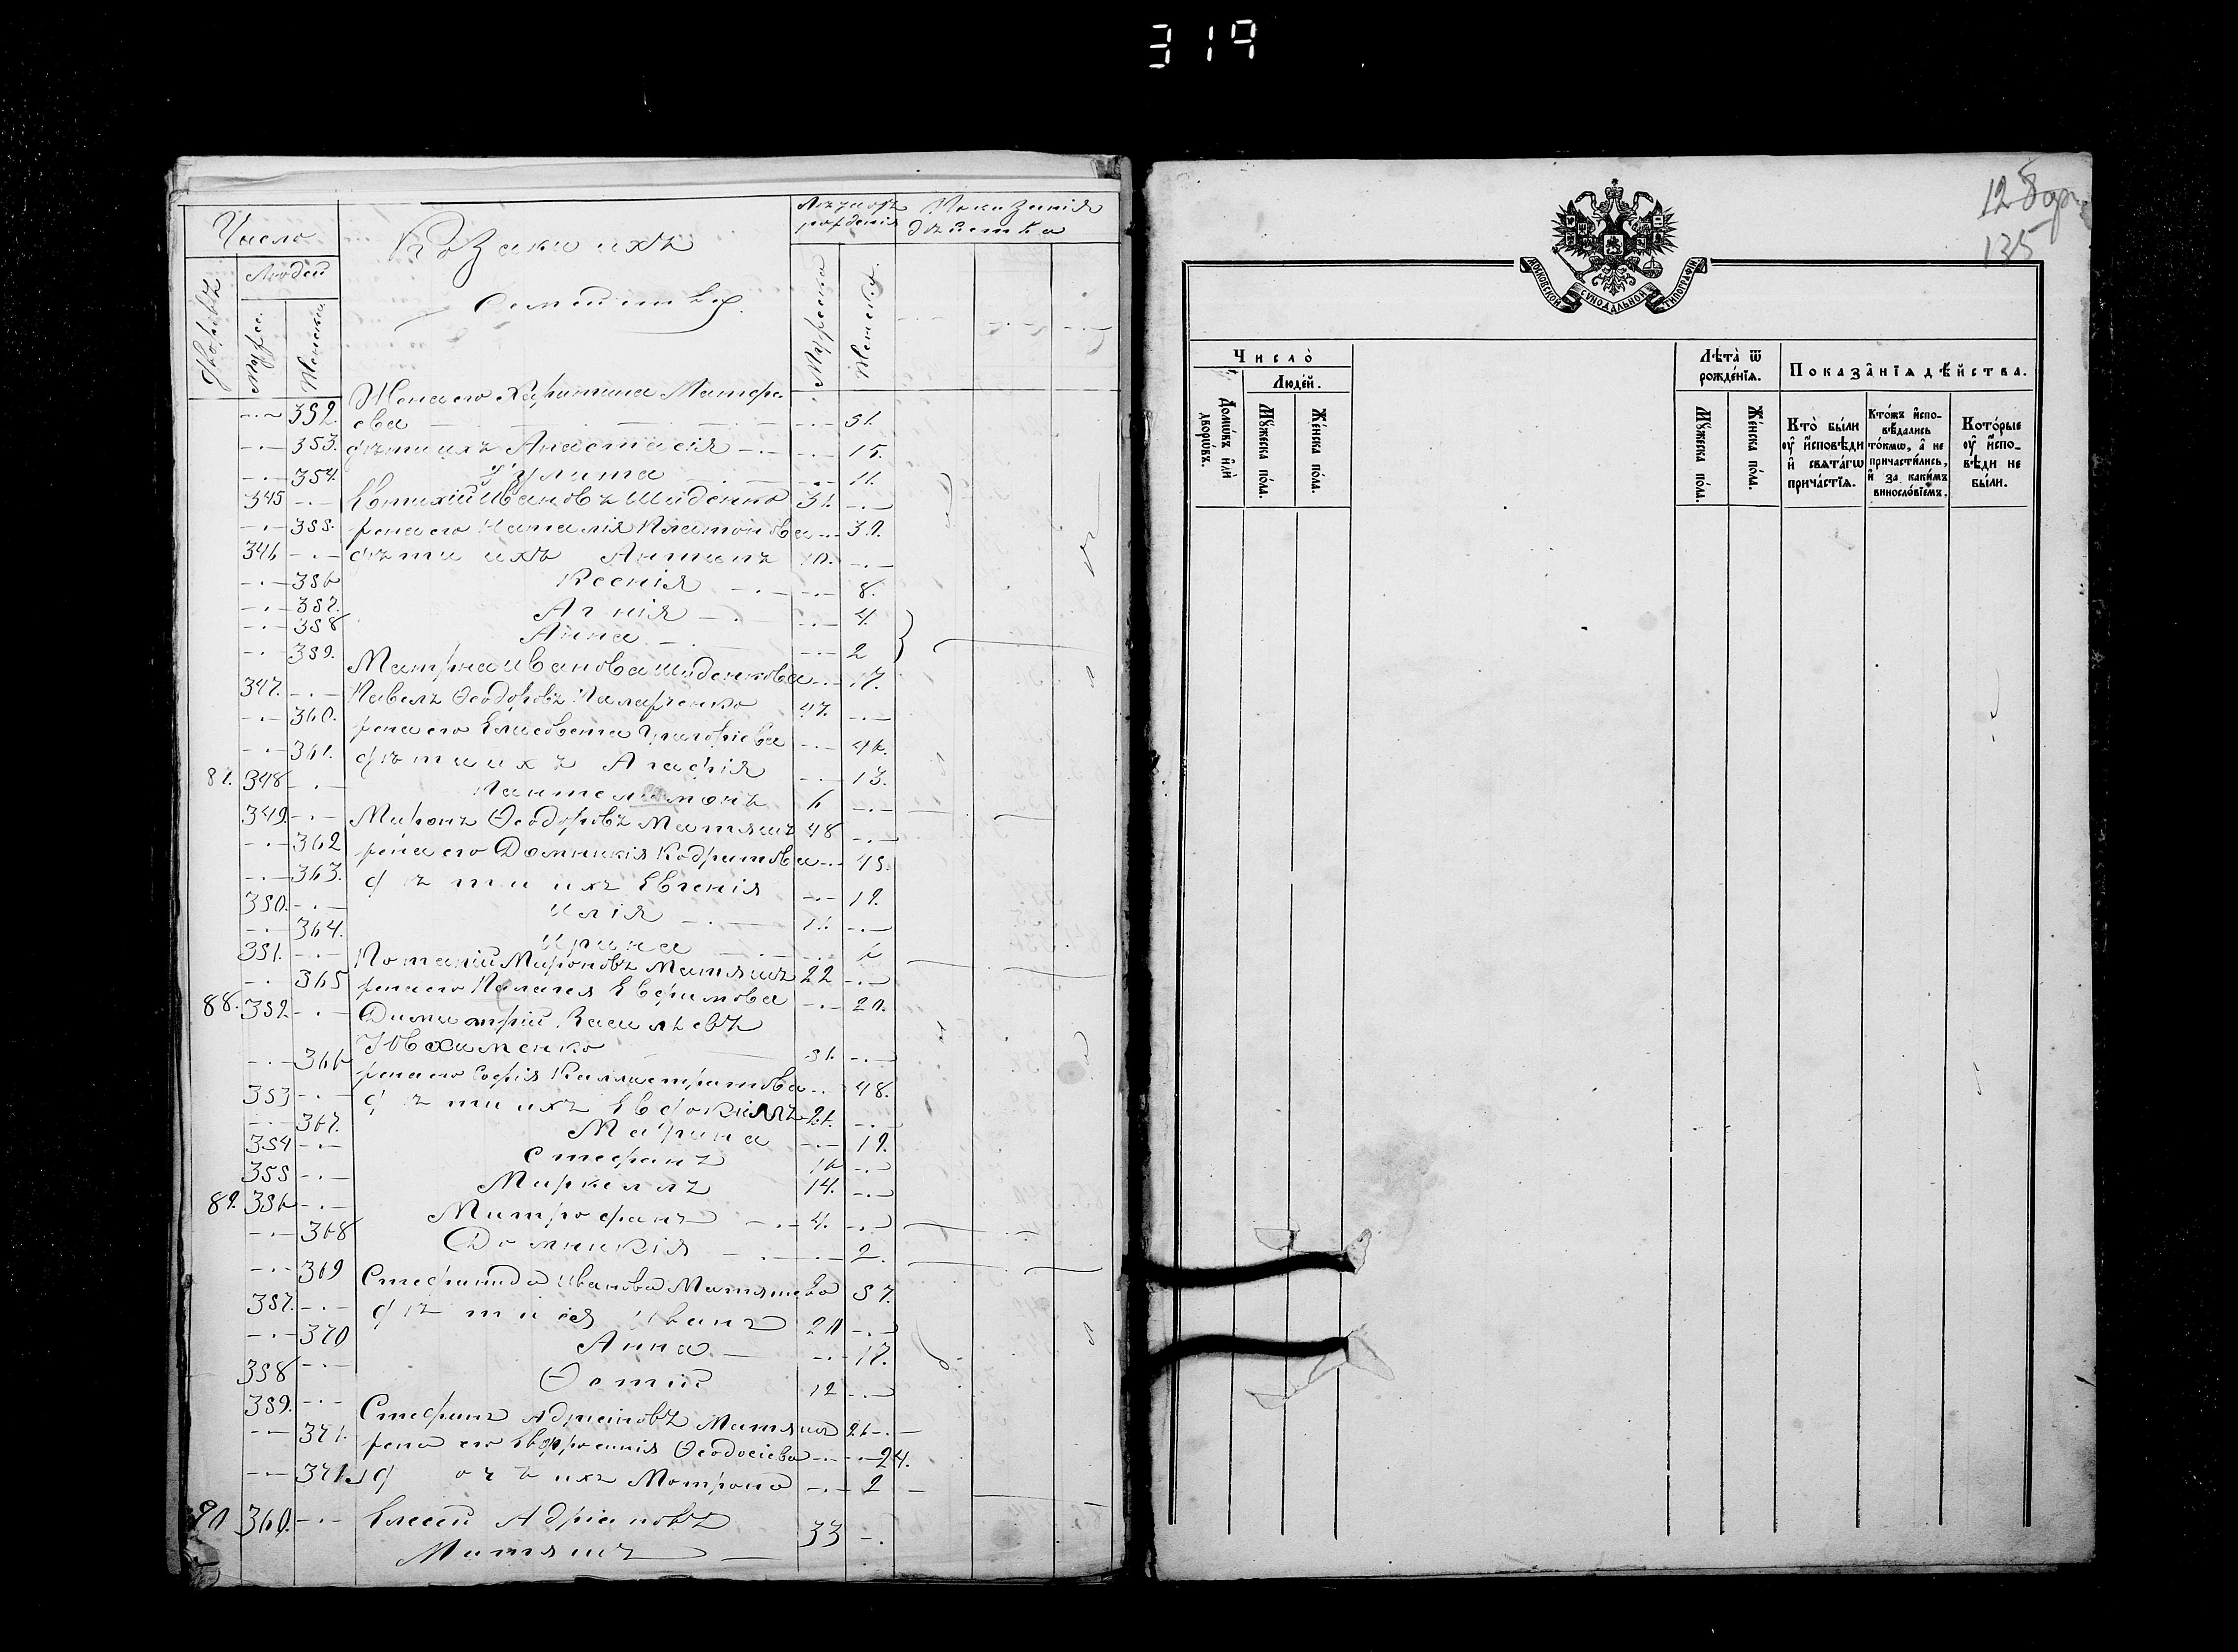 319
Число
Людей
Козаки ихъ
семейства
Лета отъ рожденія
Показанія действа
Дворовъ
Мужес.
Женска
Мужеска
Женска
Жена его Харитина Матфе-
352. ева 51.
353. дѣти ихъ Анастасія 15.
354. Іулита 11.
345 Евтихій Ивановъ Шиденко 31.
355. жена его Наталія Платонова 30.
346 дѣти ихъ Антонъ 10.
356 Ксенія 8.
357. Агнія 4.
358 Анна 2
359. Матрна Иванова Шиденкова 17.
347. Павелъ Ѳеодоровъ 47.
360. жена его Елисовета Григоріева 46.
361. дѣти ихъ Агафія 13.
87. 348 Пантелимонъ 6
349. Миронъ Ѳеодоровъ Матяшъ 48
362 жена его Домникія Кодратова 45.
363. дѣти ихъ Евгенія 19.
350. Илія 11.
364. Ирина 6
351. Потапій Мироновъ Матяшъ 22
365 жена его Пелагея Евфимова 20.
88. 352 Димитрій Васильевъ
Ювхименко 51.
366 жена его Софія Каллистратова 48.
353 дѣти ихъ Евдокимъ 21.
367. Марина 19.
354 Стефанъ 16
355 Маркеллъ 14.
89. 356 Митрофанъ 4.
368 Домникія 2.
369 Стефанида Иванова Матяшева 57.
357. дѣти ея Иванъ 20
370 Анна 17.
358 Ѳотій 12
359. Стефанъ Адріановъ Матяшъ 26
371. жена его Евфросинія Ѳеодосіева 24.
371. дочь ихъ Матрона 2
90 360. Елисей Адріановъ
Матяшъ 33
135
МОСКОВСКОЙ СѴНОДАЛЬНОЙ ТИПОГРАФІИ
Число̀
Люде́й.
Домѡ́въ и҆лѝ дворѡ́въ.
Мꙋ́жеска по́ла.
Же́нска по́ла.
Лѣ́та ѿ рожде́нїѧ.
Мꙋ́жеска по́ла.
Же́нска по́ла.
Показа̂нїѧ дѣ́йства.
Кто̀ бы́ли ᲂу҆ и҆сповѣ́ди и҆ свѧта́гѡ прича́стїѧ.
Кто́жъ и҆спо-вѣ́дались то́кмѡ, а҆ не причасти́лись, и҆ за каки́мъ винослѡ́вїемъ.
Кото́рые ᲂу҆ и҆спо-вѣ́ди не бы́ли.